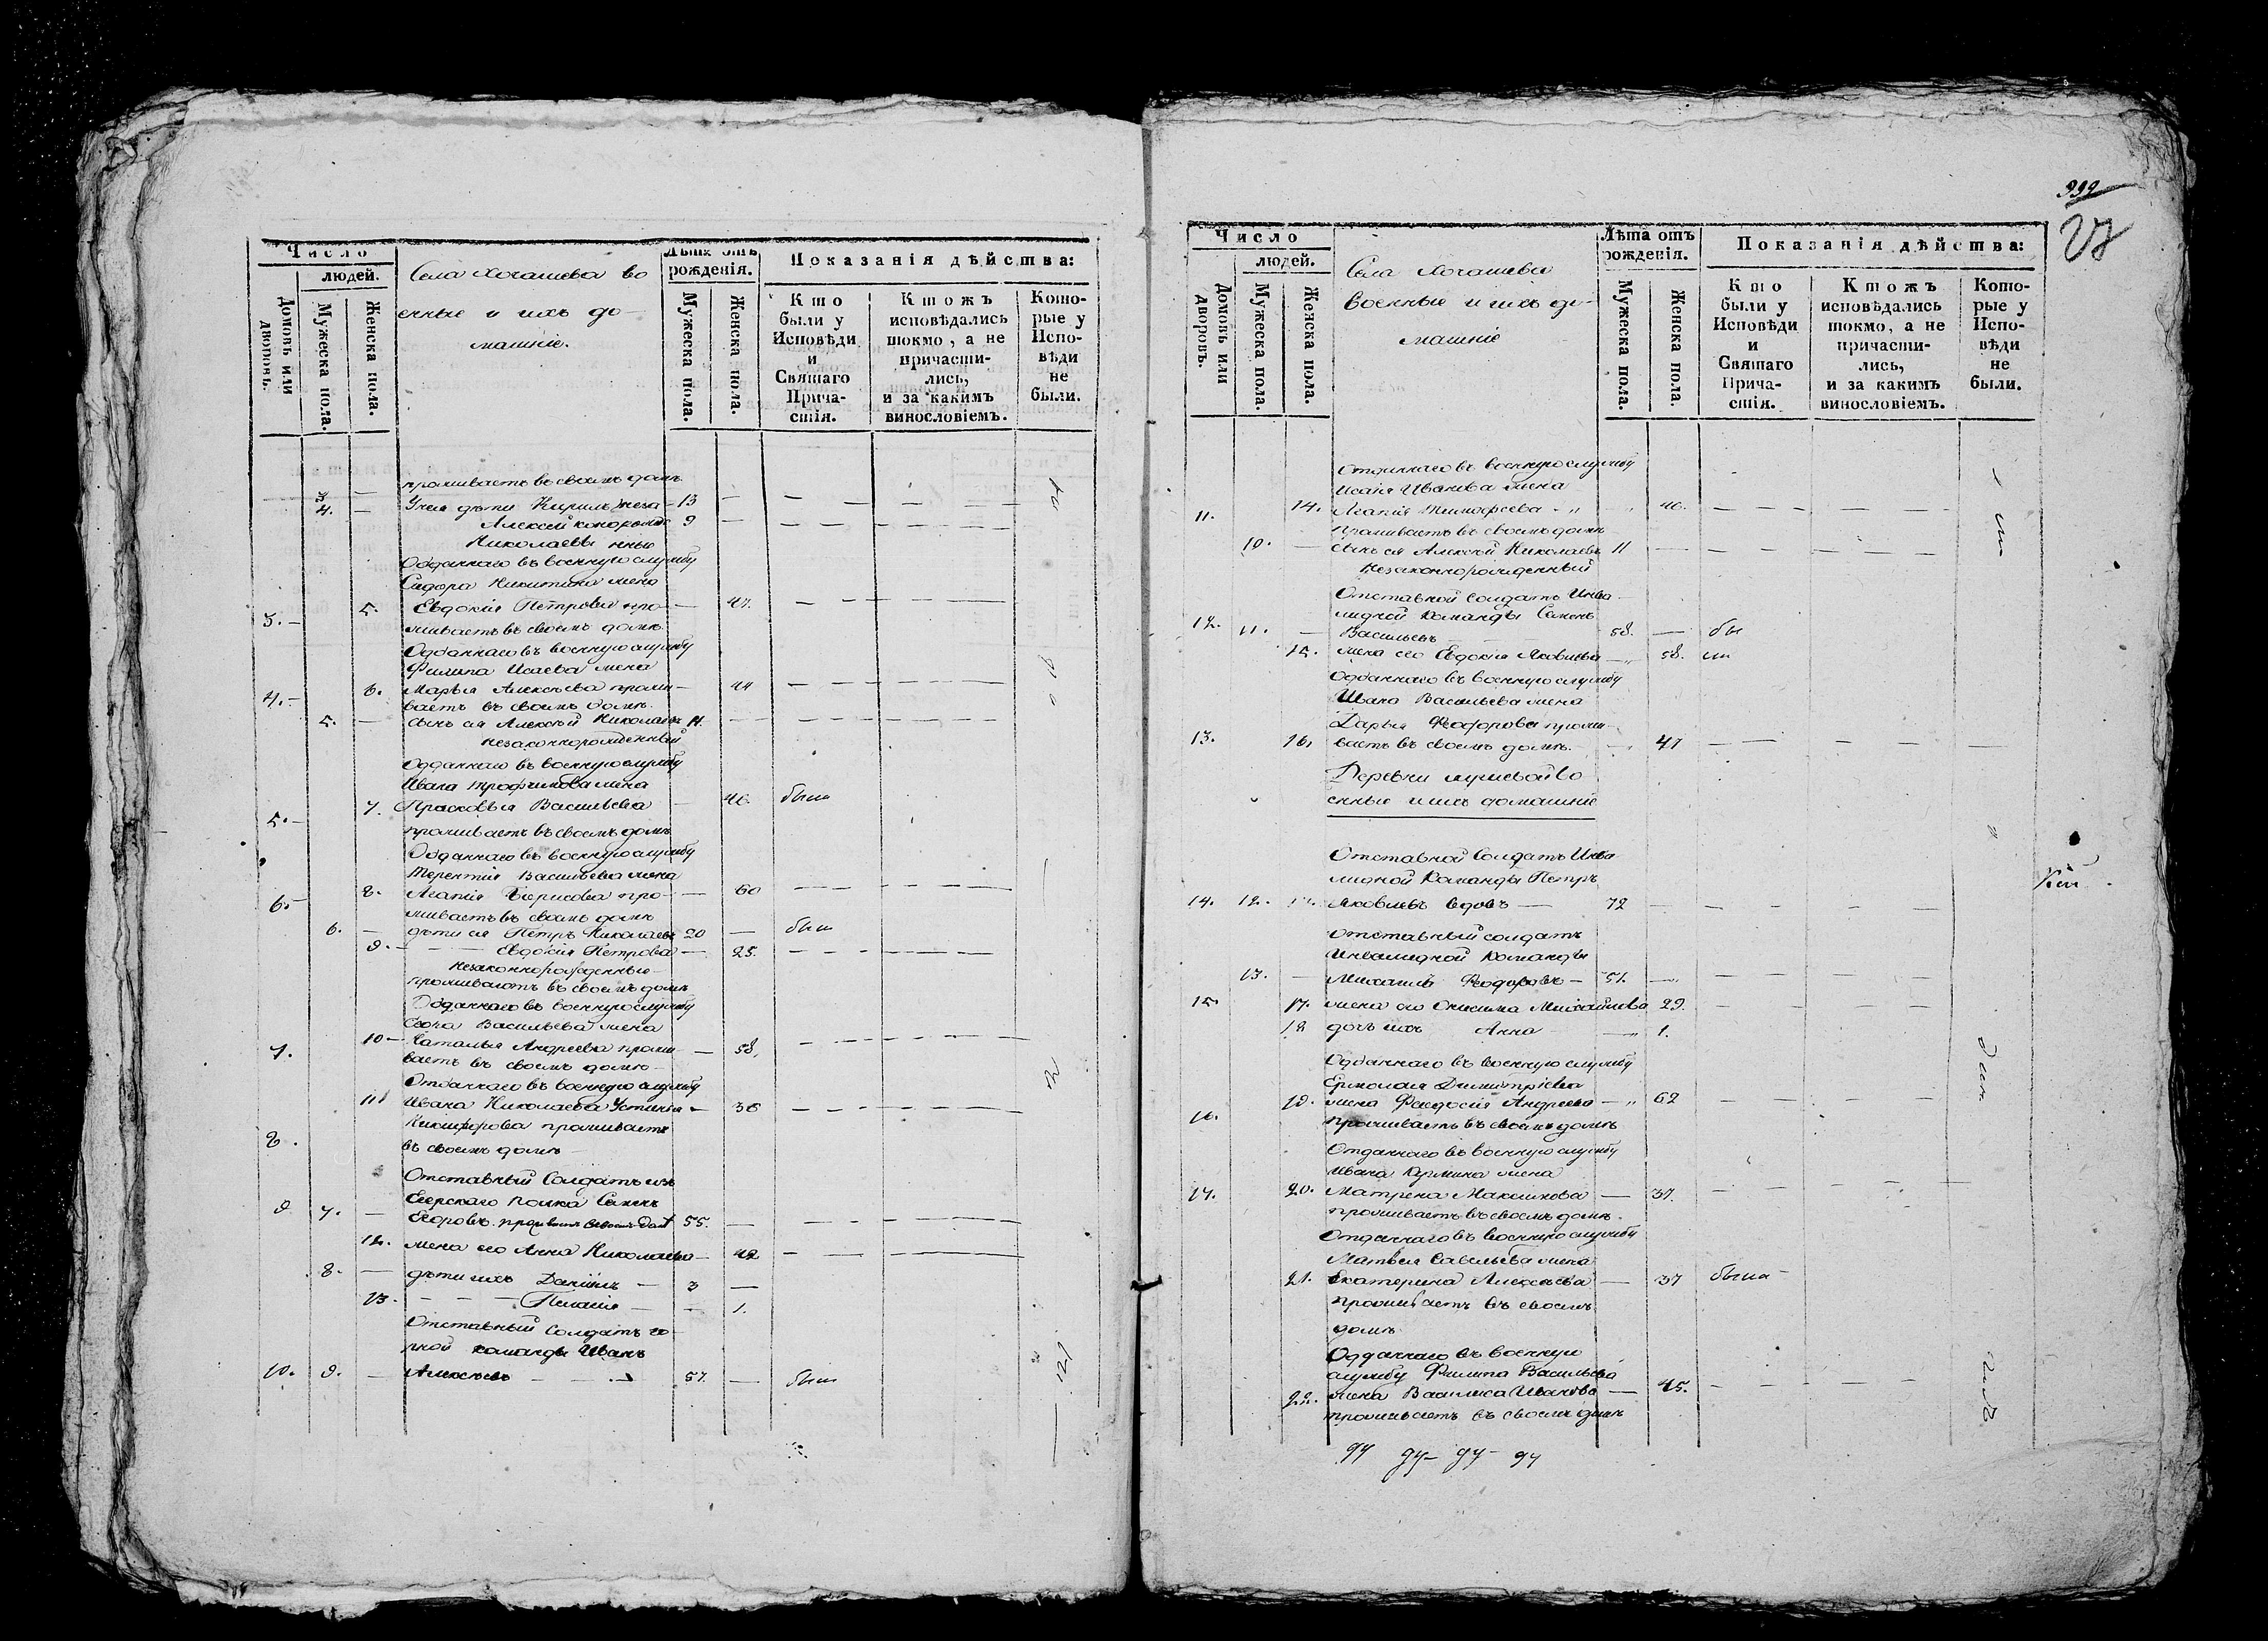 Число
людей.
Домовъ или дворовъ.
Мужеска пола.
Женска пола.
Села Хочашева во
енные и ихъ до-
машніе.
Лѣта отъ
рожденія.
Мужеска пола.
Женска пола.
Показанія дѣйства:
Кто
были у
Исповѣди
и
Святаго
Прича-
стія.
Ктожъ
исповѣдались
токмо, а не
причасти-
лись,
и за какимъ
винословіемъ.
Кото-
рые у
Испо-
вѣди
не
были.
проживаетъ въ своемъ домѣ
3. — У нея дѣти Кирилъ неза- 13 —
4. — Алексѣй конорожде 9 —
Николаевы нные
Отданнаго въ военную службу
Сидора Никитина жена
3. — 5. Евдокія Петрова про- — 47.
живаетъ въ своемъ домѣ.
Отданнаго въ военную службу
Филипа Исаева жена
4. — 6. Марья Алексѣева прожи- — 44
ваетъ въ своемъ домѣ.
5. — сынъ ея Алексѣй Николаевъ 11.
незаконнорожденный
Отданнаго въ военную службу
Ивана Трофимова жена
5. — 7. Прасковья Васильева — 46. была
проживаетъ въ своемъ домѣ
Отданнаго въ военную службу
Терентія Васильева жена
6. 8. Агапія Борисова про- — 60
живаетъ въ своемъ домѣ
6. — дѣти ея Петръ Николаевъ 20 — был
9. — Евдокія Петрова — 25.
незаконнорожденные
проживаютъ въ своемъ домѣ
Отданнаго въ военную службу
Васильева жена
7. 10 — Наталья Андреева прожи — 58.
ваетъ въ своемъ домѣ —
Отданнаго въ военную службу
11 Ивана Николаева Устинья — 36
Никифорова проживаетъ
8. въ своемъ домѣ —
Отставный Солдатъ изъ
Егерскаго полка Семенъ
9 7. — Егоровъ 55. —
12. жена его Анна Николаева — 42
8. — дѣти ихъ Даніилъ — 3 —
13. — — — Пелагія — — 1.
Отставный Солдатъ
команды Иванъ
10. 9. — Алексѣевъ — — 57. — был
999
27
Число
людей.
Домовъ или дворовъ.
Мужеска пола.
Женска пола.
Села Хочашева
военные и ихъ до-
машніе
Лѣта отъ
рожденія.
Мужеска пола.
Женска пола.
Показанія дѣйства:
Кто
были у
Исповѣди
и
Святаго
Прича-
стія.
Ктожъ
исповѣдались
токмо, а не
причасти-
лись,
и за какимъ
винословіемъ.
Кото-
рые у
Испо-
вѣди
не
были.
Отданнаго въ военную службу
Исаія Иванова жена
11. 14. Агапія Тимофеева 40.
проживаетъ въ своемъ домѣ
10. — сынъ ея Алексѣй Николаевъ 11 —
незаконнорожденный
Отставной Солдатъ Инва-
лидной Команды Семенъ
12. 11. — Васильевъ 58. — бы
15. жена его Евдокія Яковлева — 58. ли
Отданнаго въ военную службу
Ивана Васильева жена
Дарья Феодорова прожи-
13. 16. ваетъ въ своемъ домѣ. 47
Деревни во
енные и ихъ домашніе
Отставной Солдатъ Инва
лидной Команды Петръ
14. 12. Яковлевъ вдовъ — 72 —
отставный солдатъ
Инвалидной Команды
13. — Михаилъ Феодоровъ — 51. —
15 17. жена его Михайлова 29.
18 дочь ихъ Анна — 1.
Отданнаго въ военную службу
Ермолая Димитріева
16. 19. жена Феодосія Андреева — 62
проживаетъ въ своемъ домѣ
Отданнаго въ военную службу
Ивана жена
17. 20. Матрена Максимова — 37.
проживаетъ въ своемъ домѣ.
Отданнаго въ военную службу
Матвея Савельева жена
21. Екатерина Алексѣева — 37 была
проживаетъ въ своемъ
домѣ
Отданнаго въ военную
службу Филипа Васильева
22. жена Василиса Иванова — 45.
проживаетъ въ своемъ домѣ